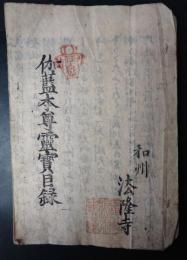 和州
法隆寺
伽藍本尊靈寶目録